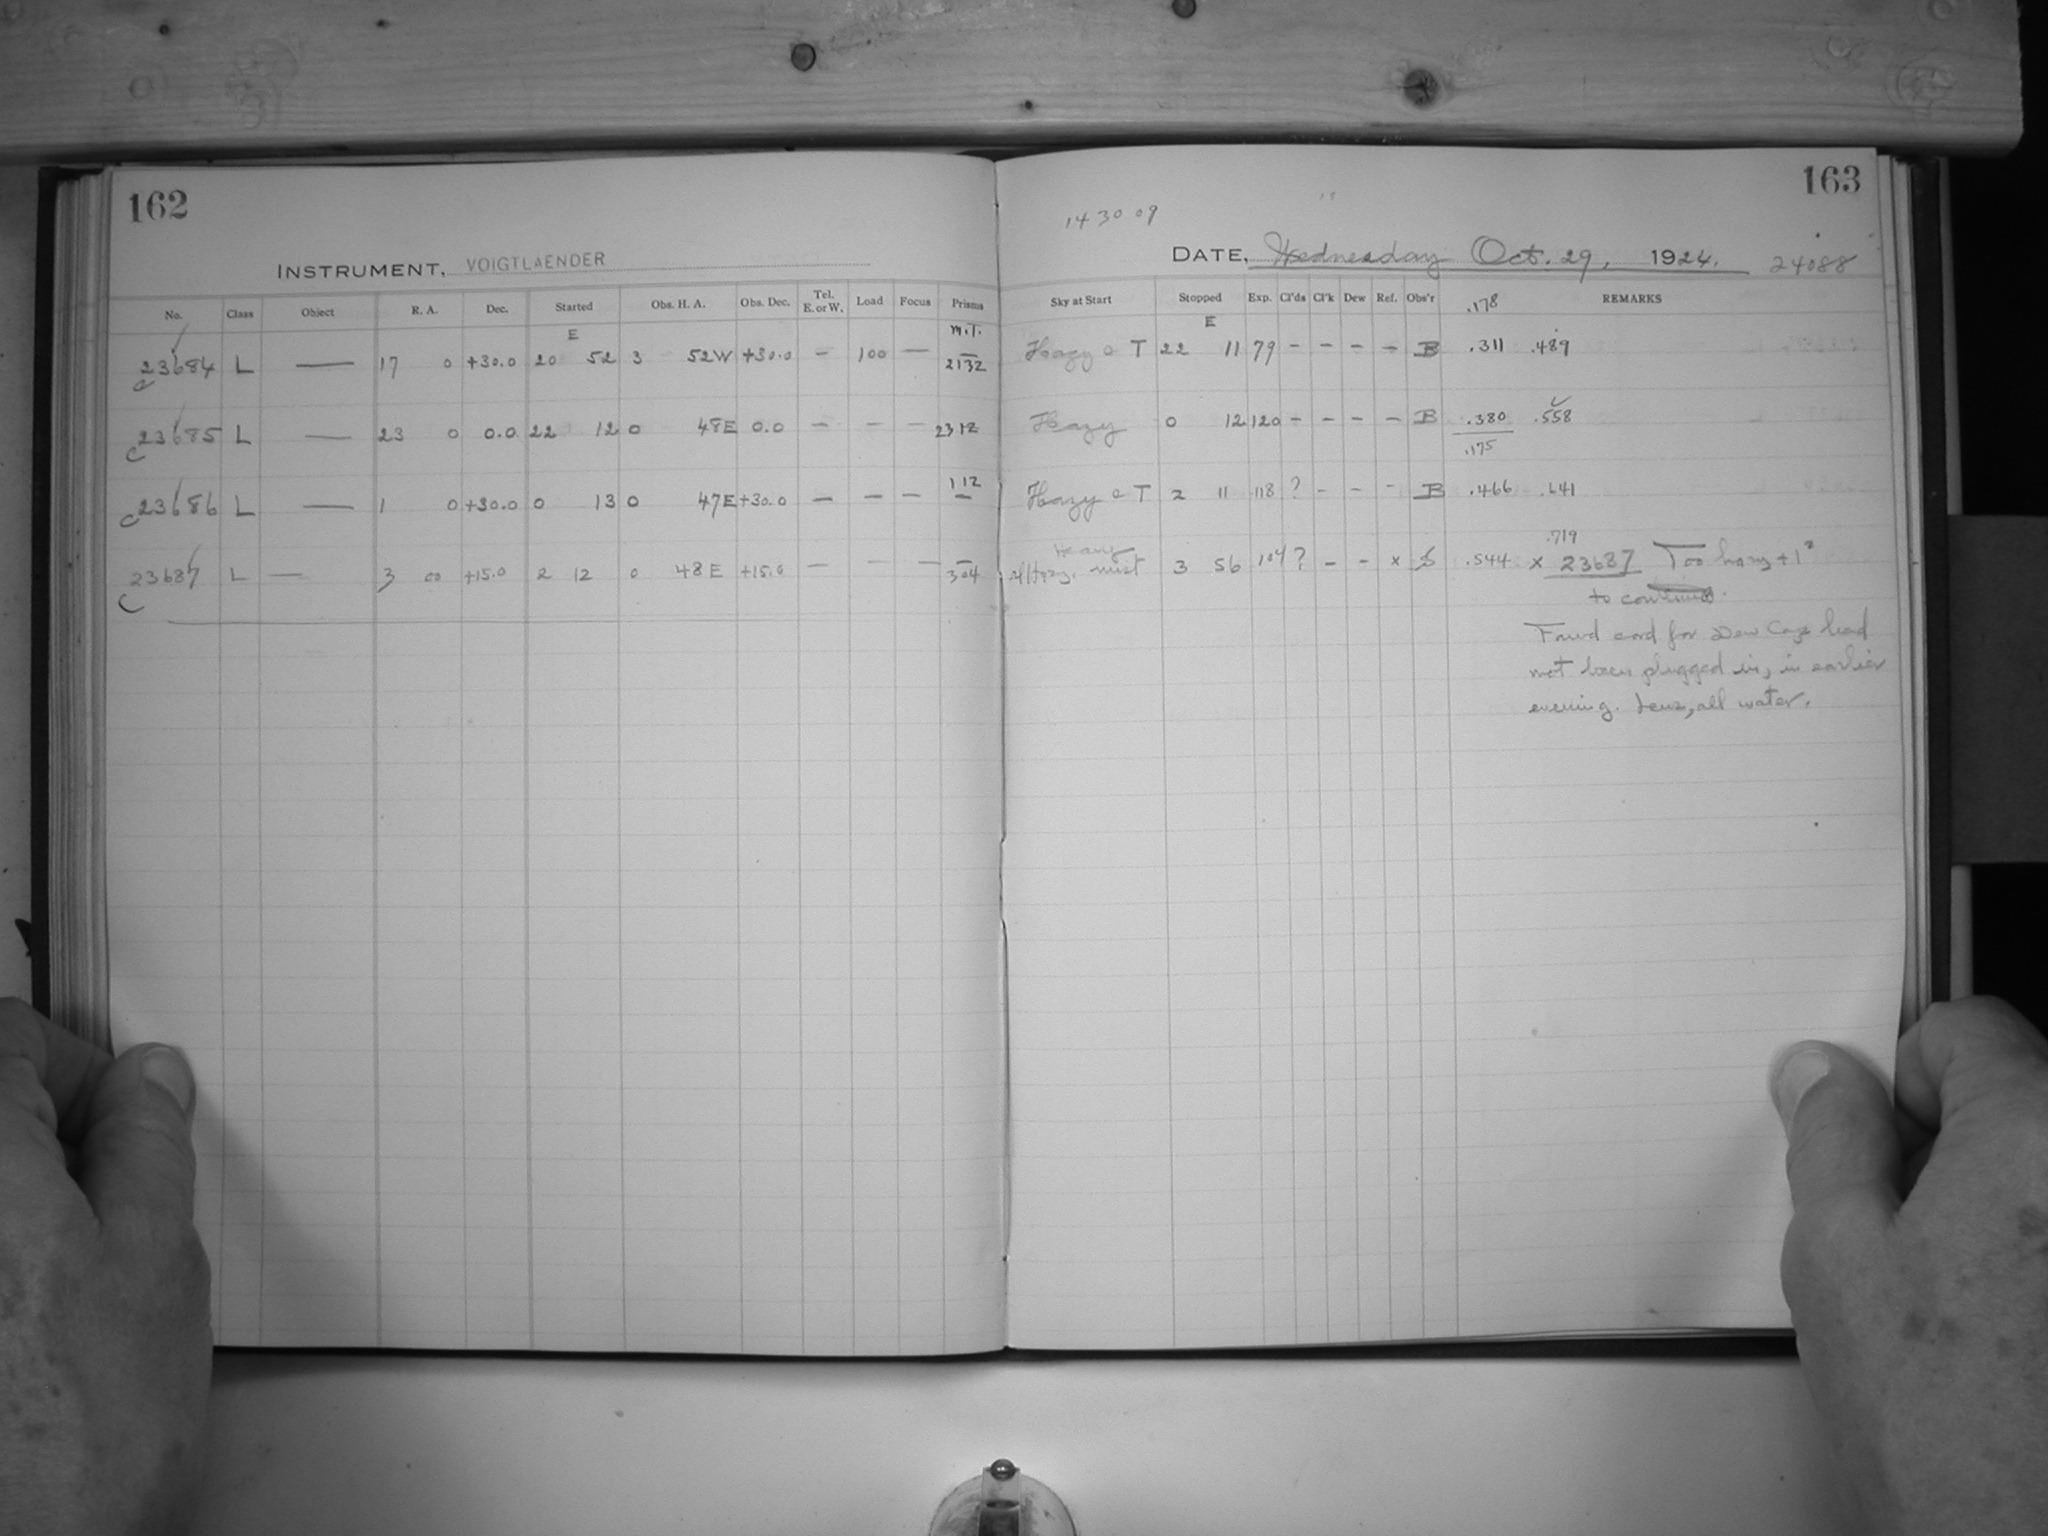 162
INSTRUMENT, VOIGTLAENDER
No. Class Object R. A. Dec. Started Obs. H. A. Obs. Dec. Tel. E. or W. Load Focus Prisms
E m.T.
23684 L — 17 0 +30.0 20 52 3 52W +30.0 — 100 — 2132
C
23685 L — 23 0 0.0 22 12 0 48E 0.0 — — — 2312
C
112
23686 L — 1 0 +30.0 0 13 0 47E +30.0 — — — —
C
23687 L — 3 00 +15.0 2 12 0 48E +15.0 — — — 304
C
163
14 30 09
DATE, Wednesday Oct. 29, 1924. 24088
Sky at Start Stopped Exp. Cl'ds Cl'k Dew Ref. Obs'r .178 REMARKS
E
Hazy c T 22 11 79 – – – – B .311 .489
Hazy 0 12 120 – – – – B .380 .558
.175
Hazy c T 2 11 118 ? – – – B .466 .641
Heavy .719
Hazy, mist 3 56 104 ? – – x S .544 x 23687 Too hazy +1²
to continue.
Found cord for Dew Cap head
not been plugged in, in earlier
evening. Lens, all water.